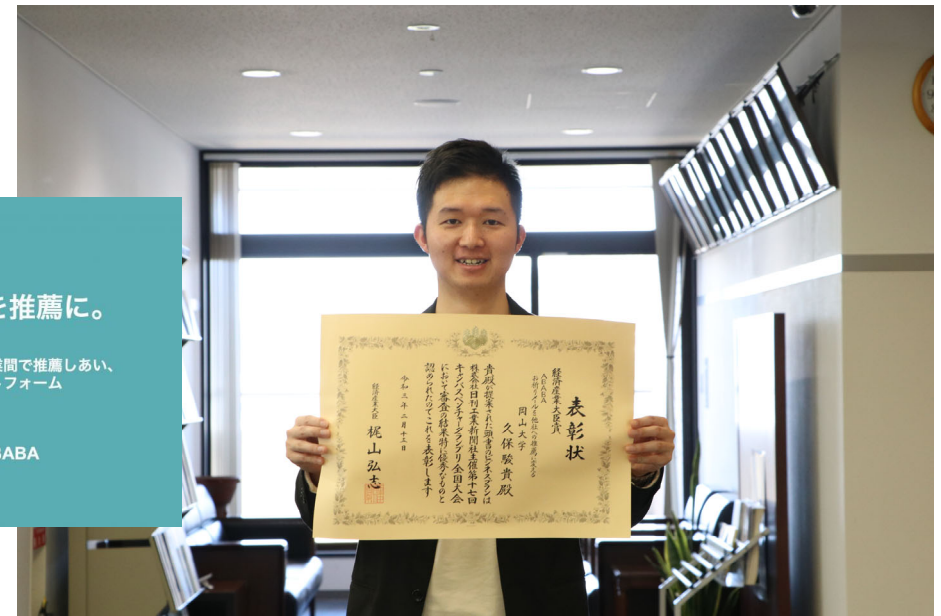 を推薦に。
業間で推薦しあい、
トフォーム
BABA
表彰状
経済産業大臣賞
ABABA
お祈りメールを他社への推薦に変える
岡山大学
久保駿貴殿
貴殿が提案された頭書のビジネスプランは
株式会社日刊工業新聞社主催第十七回
キャンパスベンチャーグランプリ全国大会
において審査の結果特に優秀なものと
認められたのでこれを表彰します
令和三年二月十五日
経済産業大臣 梶山弘志